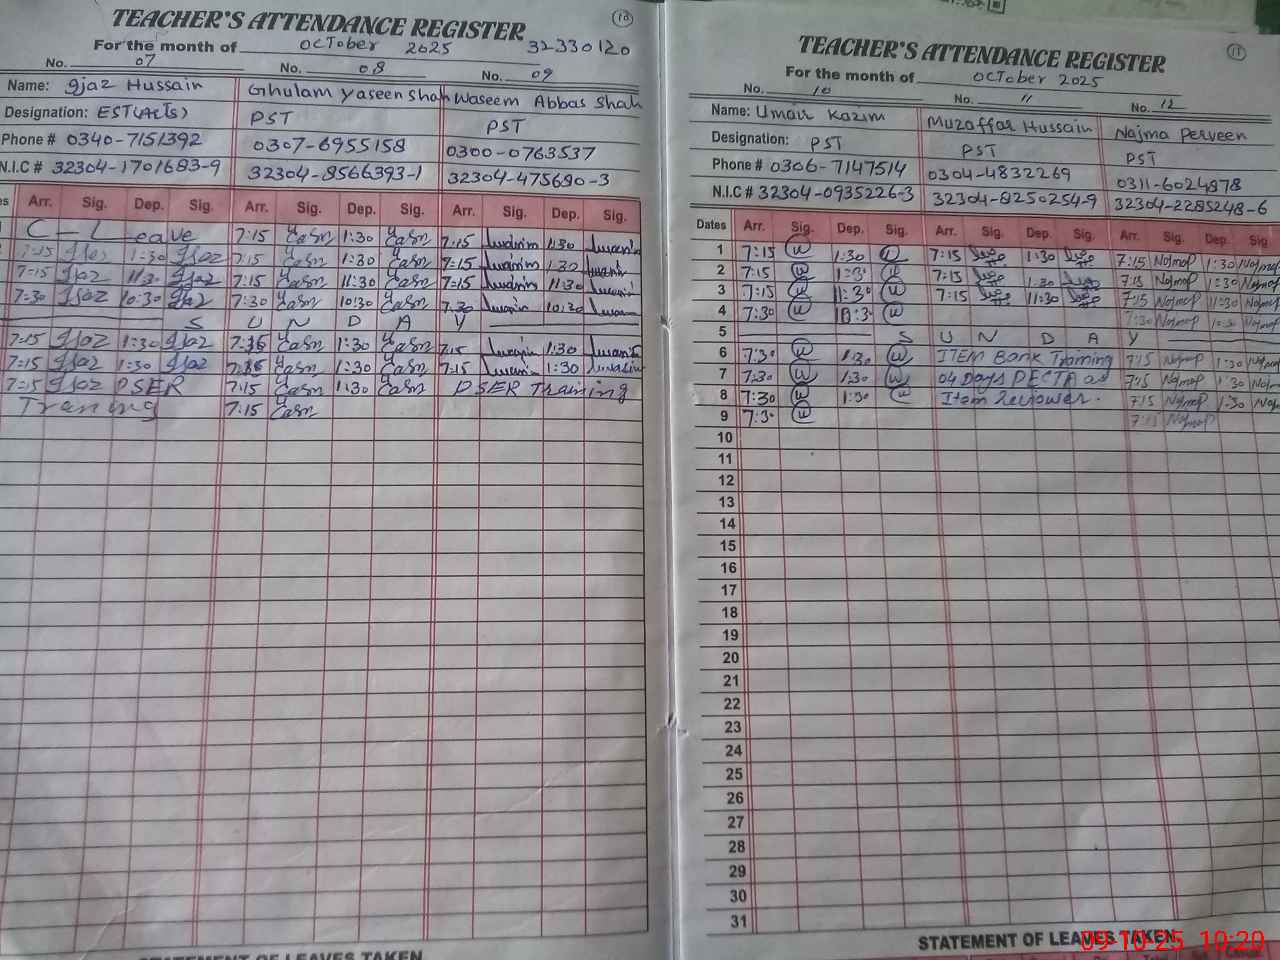 TEACHER'S ATTENDANCE REGISTER
10
For the month of October 2025 32330120
No. 07 No. 08 No. 09
Name: Ijaz Hussain Ghulam yaseen shah Waseem Abbas Shah
Designation: EST(Arts) PST PST
Phone # 0340-7151392 0307-6955158 0300-0763537
N.I.C # 32304-1701683-9 32304-8566393-1 32304-475690-3
Arr. Sig. Dep. Sig. Arr. Sig. Dep. Sig. Arr. Sig. Dep. Sig.
C - Leave 7:15 1:30 7:15 1:30
7:15 Ijaz 1:30 Ijaz 7:15 1:30 7:15 1:30
7:15 Ijaz 11:30 Ijaz 7:15 11:30 7:15 11:30
7:30 Ijaz 10:30 Ijaz 7:30 10:30 7:30 10:30
S U N D A Y
7:15 Ijaz 1:30 Ijaz 1:30 7:15 1:30
7:15 Ijaz 1:30 Ijaz 1:30 7:15 1:30
7:15 Ijaz PSER 7:15 1:30 PSER Training
Training 7:15
STATEMENT OF LEAVES TAKEN
TEACHER'S ATTENDANCE REGISTER
11
For the month of October 2025
No. 10 No. 11 No. 12
Name: Umair Kazim Muzaffar Hussain Najma Perveen
Designation: PST PST PST
Phone # 0306-7147514 0304-4832269 0311-6024978
N.I.C # 32304-0935226-3 32304-8250254-9 32304-2285248-6
Dates Arr. Sig. Dep. Sig. Arr. Sig. Dep. Sig. Arr. Sig. Dep. Sig.
1 7:15 1:30 7:15 1:30 7:15 1:30
2 7:15 1:30 7:15 1:30 7:15 1:30
3 7:15 11:30 7:15 11:30 7:15 11:30
4 7:30 10:3 7:30
5 S U N D A Y
6 7:30 1:30 ITEM Bank Training 7:15 1:30
7 7:30 1:30 04 Days PECTA as 7:15 1:30
8 7:30 1:30 Item Reviewer. 7:15 1:30
9 7:30 7:15
10
11
12
13
14
15
16
17
18
19
20
21
22
23
24
25
26
27
28
29
30
31
STATEMENT OF LEAVES TAKEN
09-10-25 10:20